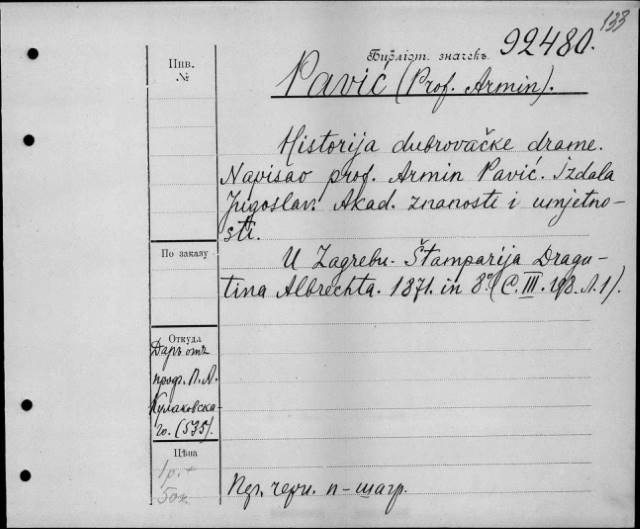 133
Библіот. значекъ 92480.
Инв.
№
Pavić (Prof. Armin).
Historija dubrovačke drame.
Napisao prof. Armin Pavić. Izdala
Jugoslav. Akad. znanosti i umjetno-
sti.
По заказу
U Zagrebu. Štamparija Dragu-
tina Albrechta. 1871. in 8º (C. III. 198. Л. 1).
Откуда
Даръ отъ
проф. П. А.
Кулаковска-
го. (535).
Цѣна
1 р.
50 к
черн. п-шагр.